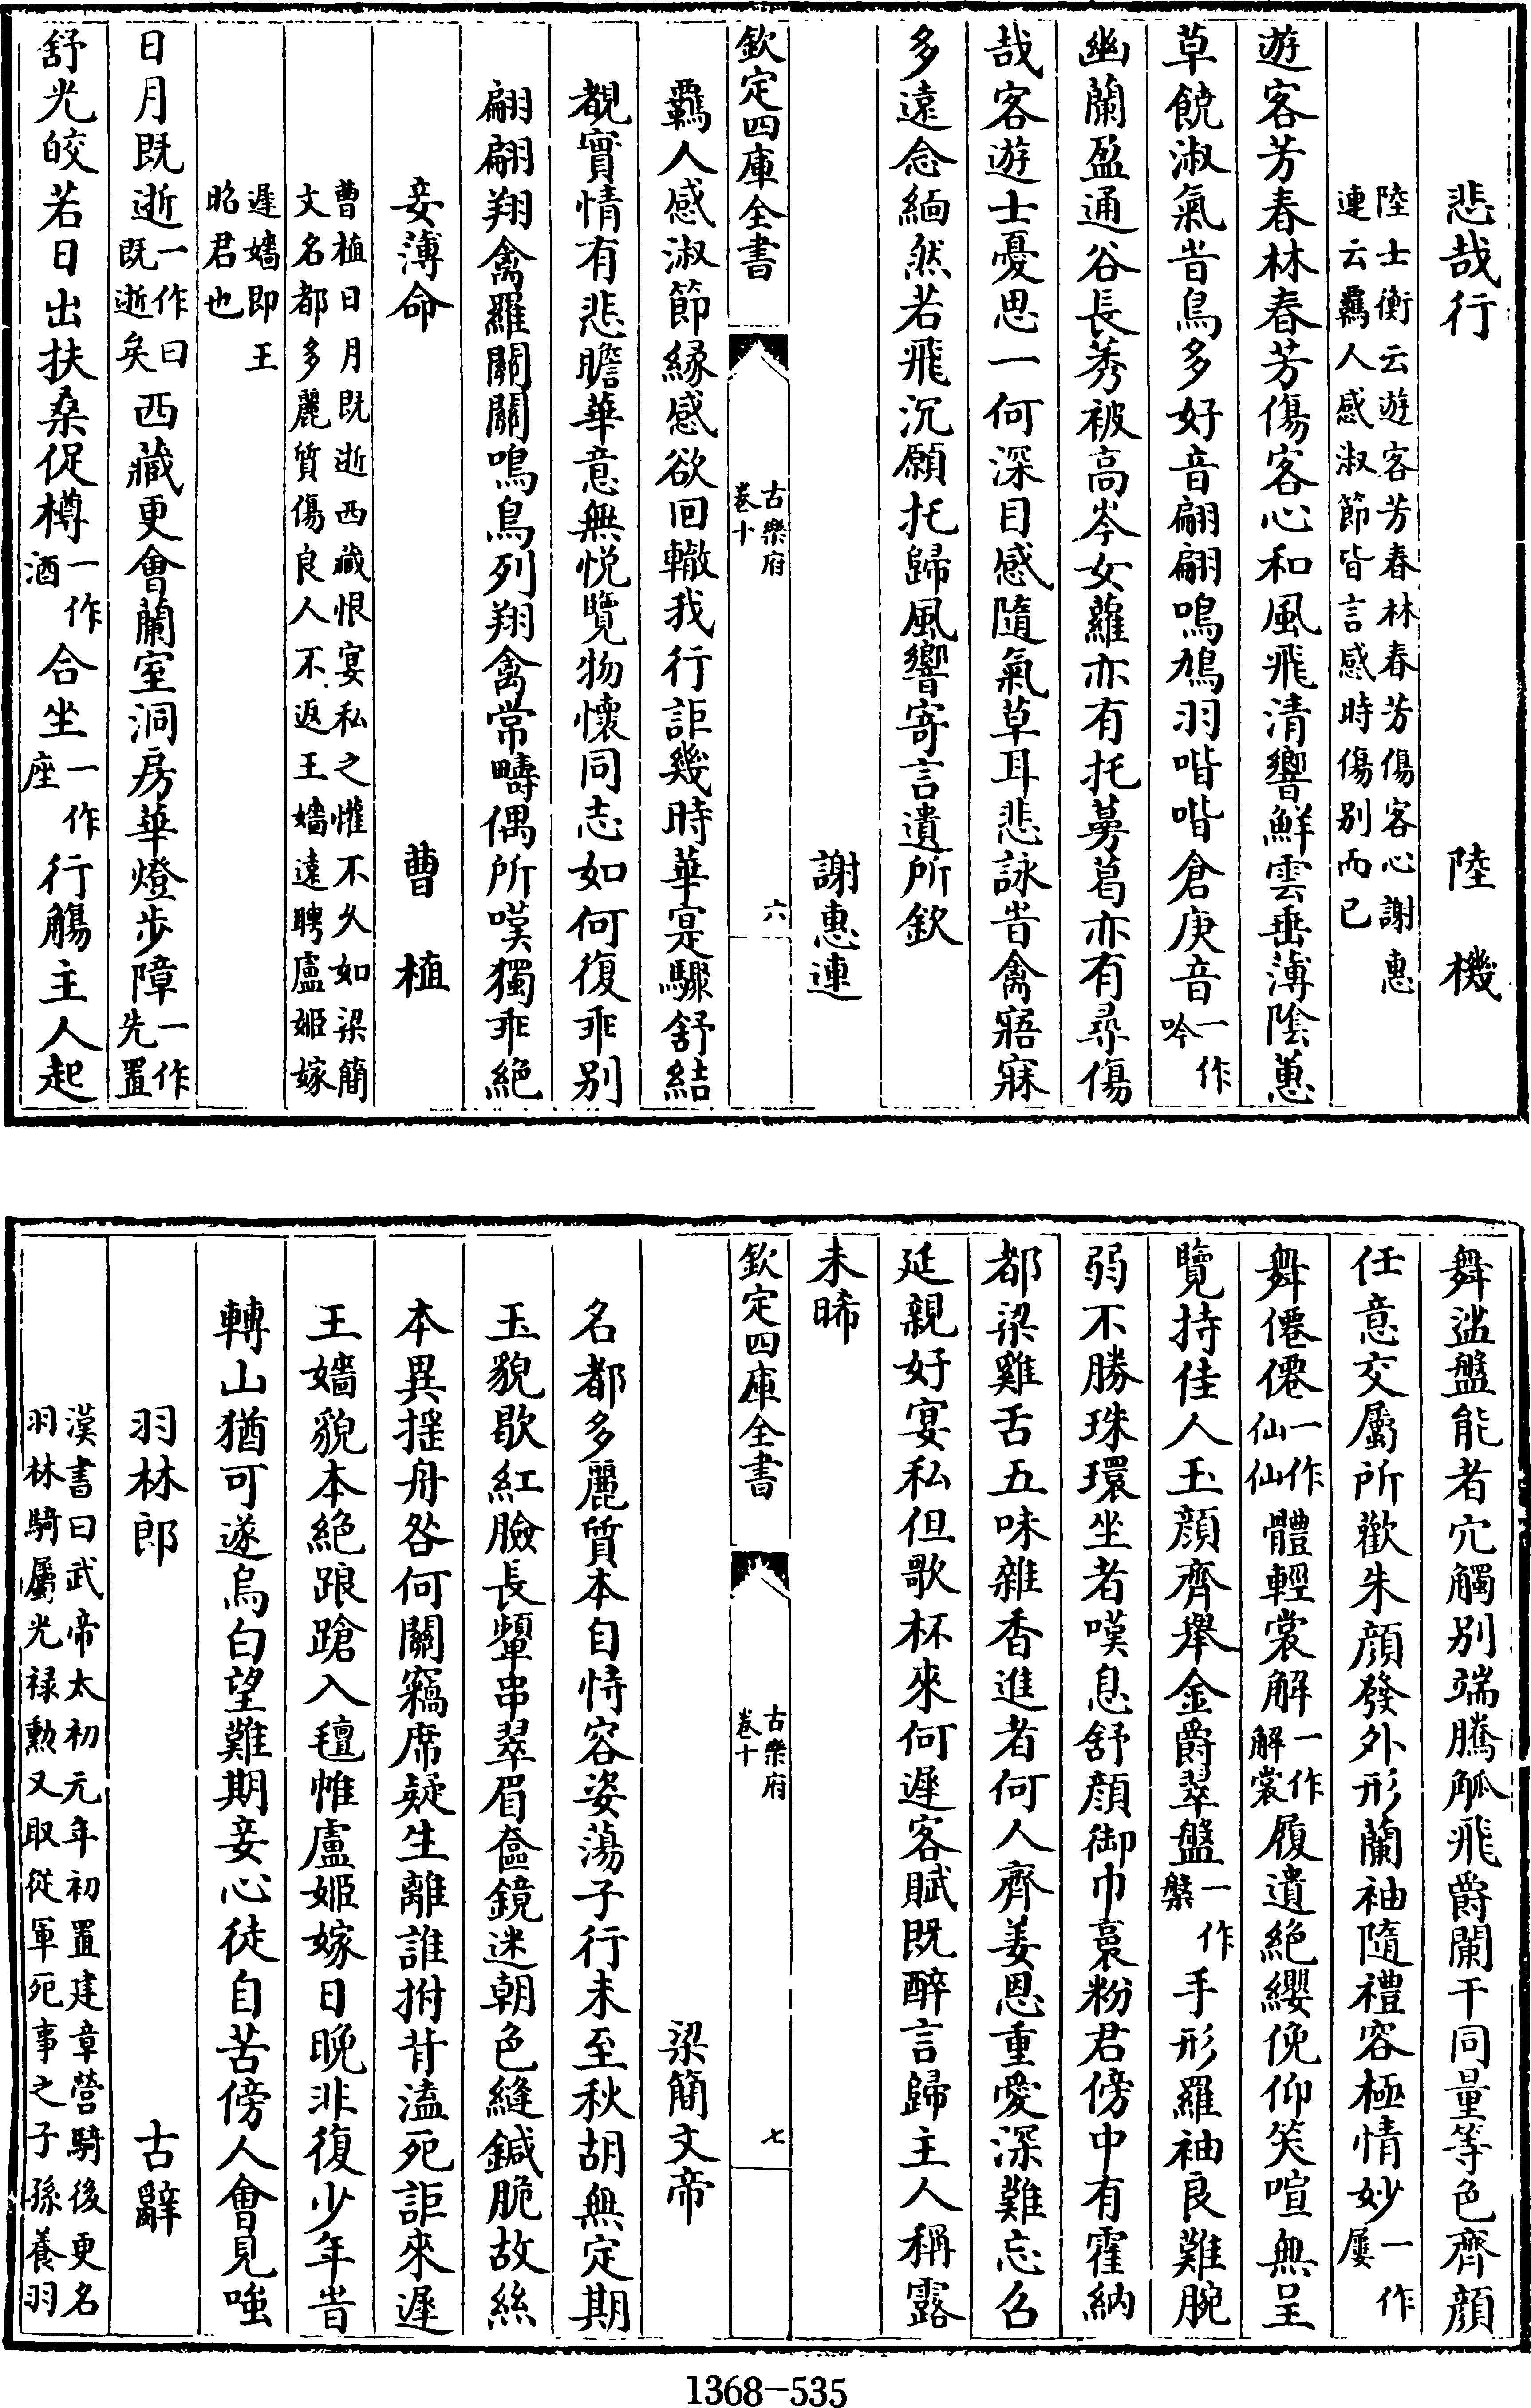 悲哉行　陸機
陸士衡云遊客芳春林春芳傷客心謝惠
連云羈人感淑節皆言感時傷別而已
遊客芳春林春芳傷客心和風飛清響鮮雲垂薄陰蕙
草饒淑氣時鳥多好音翩翩鳴鳩羽喈喈倉庚音一作吟
幽蘭盈通谷長莠被高岑女蘿亦有托蔓葛亦有尋傷
哉客遊士憂思一何深目感隨氣草耳悲詠時禽寤寐
多遠念緬然若飛沉願托歸風響寄言遺所欽
謝惠連
欽定四庫全書　古樂府卷十　六
羈人感淑節緣感欲回轍我行詎幾時華寔驟舒結
覩實情有悲瞻華意無悅覽物懷同志如何復乖别
翩翩翔禽羅關關鳴鳥列翔禽常疇偶所嘆獨乖絕
妾薄命　曹植
曹植日月既逝西藏恨宴私之懽不久如梁簡
文名都多麗質傷良人不返王嬙遠聘盧姬嫁
遲嬙即王
昭君也
日月既逝一作曰既逝矣西藏更會蘭室洞房華燈步障一作先置
舒光皎若日出扶桑促樽一作酒合坐一作座行觴主人起
舞盤盤能者穴觸别端騰觚飛爵闌干同量等色齊顔
任意交屬所歡朱顔發外形蘭袖隨禮容極情妙一作屢
舞僊僊一作仙仙體輕裳解一作解裳履遺絕纓俛仰笑喧無呈
覽持佳人玉顔齊舉金爵翠盤一作槃手形羅袖良難腕
弱不勝珠環坐者嘆息舒顔御巾裛粉君傍中有霍納
都梁雞舌五味雜香進者何人齊姜恩重愛深難忘召
延親好宴私但歌杯來何遲客賦既醉言歸主人稱露
未晞
欽定四庫全書　古樂府卷十　七
梁簡文帝
名都多麗質本自恃容姿蕩子行未至秋胡無定期
玉貌歇紅臉長顰串翠眉奩鏡迷朝色縫鍼脆故絲
本異揺舟咎何關竊席疑生離誰拊背溘死詎來遲
王嬙貌本絕踉蹌入氊帷盧姬嫁日晚非復少年時
轉山猶可遂烏白望難期妾心徒自苦傍人會見嗤
羽林郎　古辭
漢書曰武帝太初元年初置建章營騎後更名
羽林騎屬光禄勲又取從軍死事之子孫養羽
1368—535